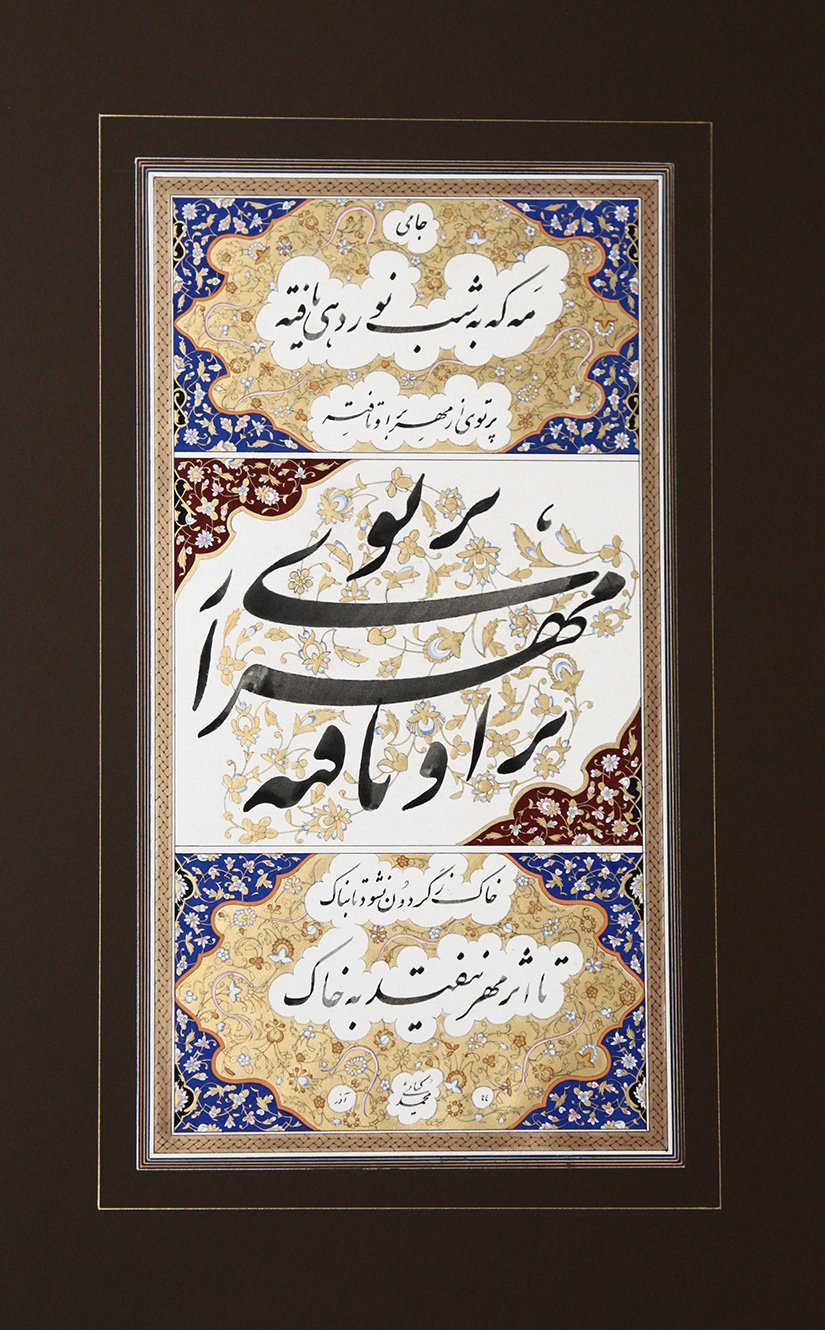 جامی
مَه که به شب نوردهی یافته
پرتوی از مهر بر او تافته
پرتوی
از مهر
بر او تافته
خاک ز گردون نشود تابناک
تا اثر مهر نیفتد به خاک
آذر